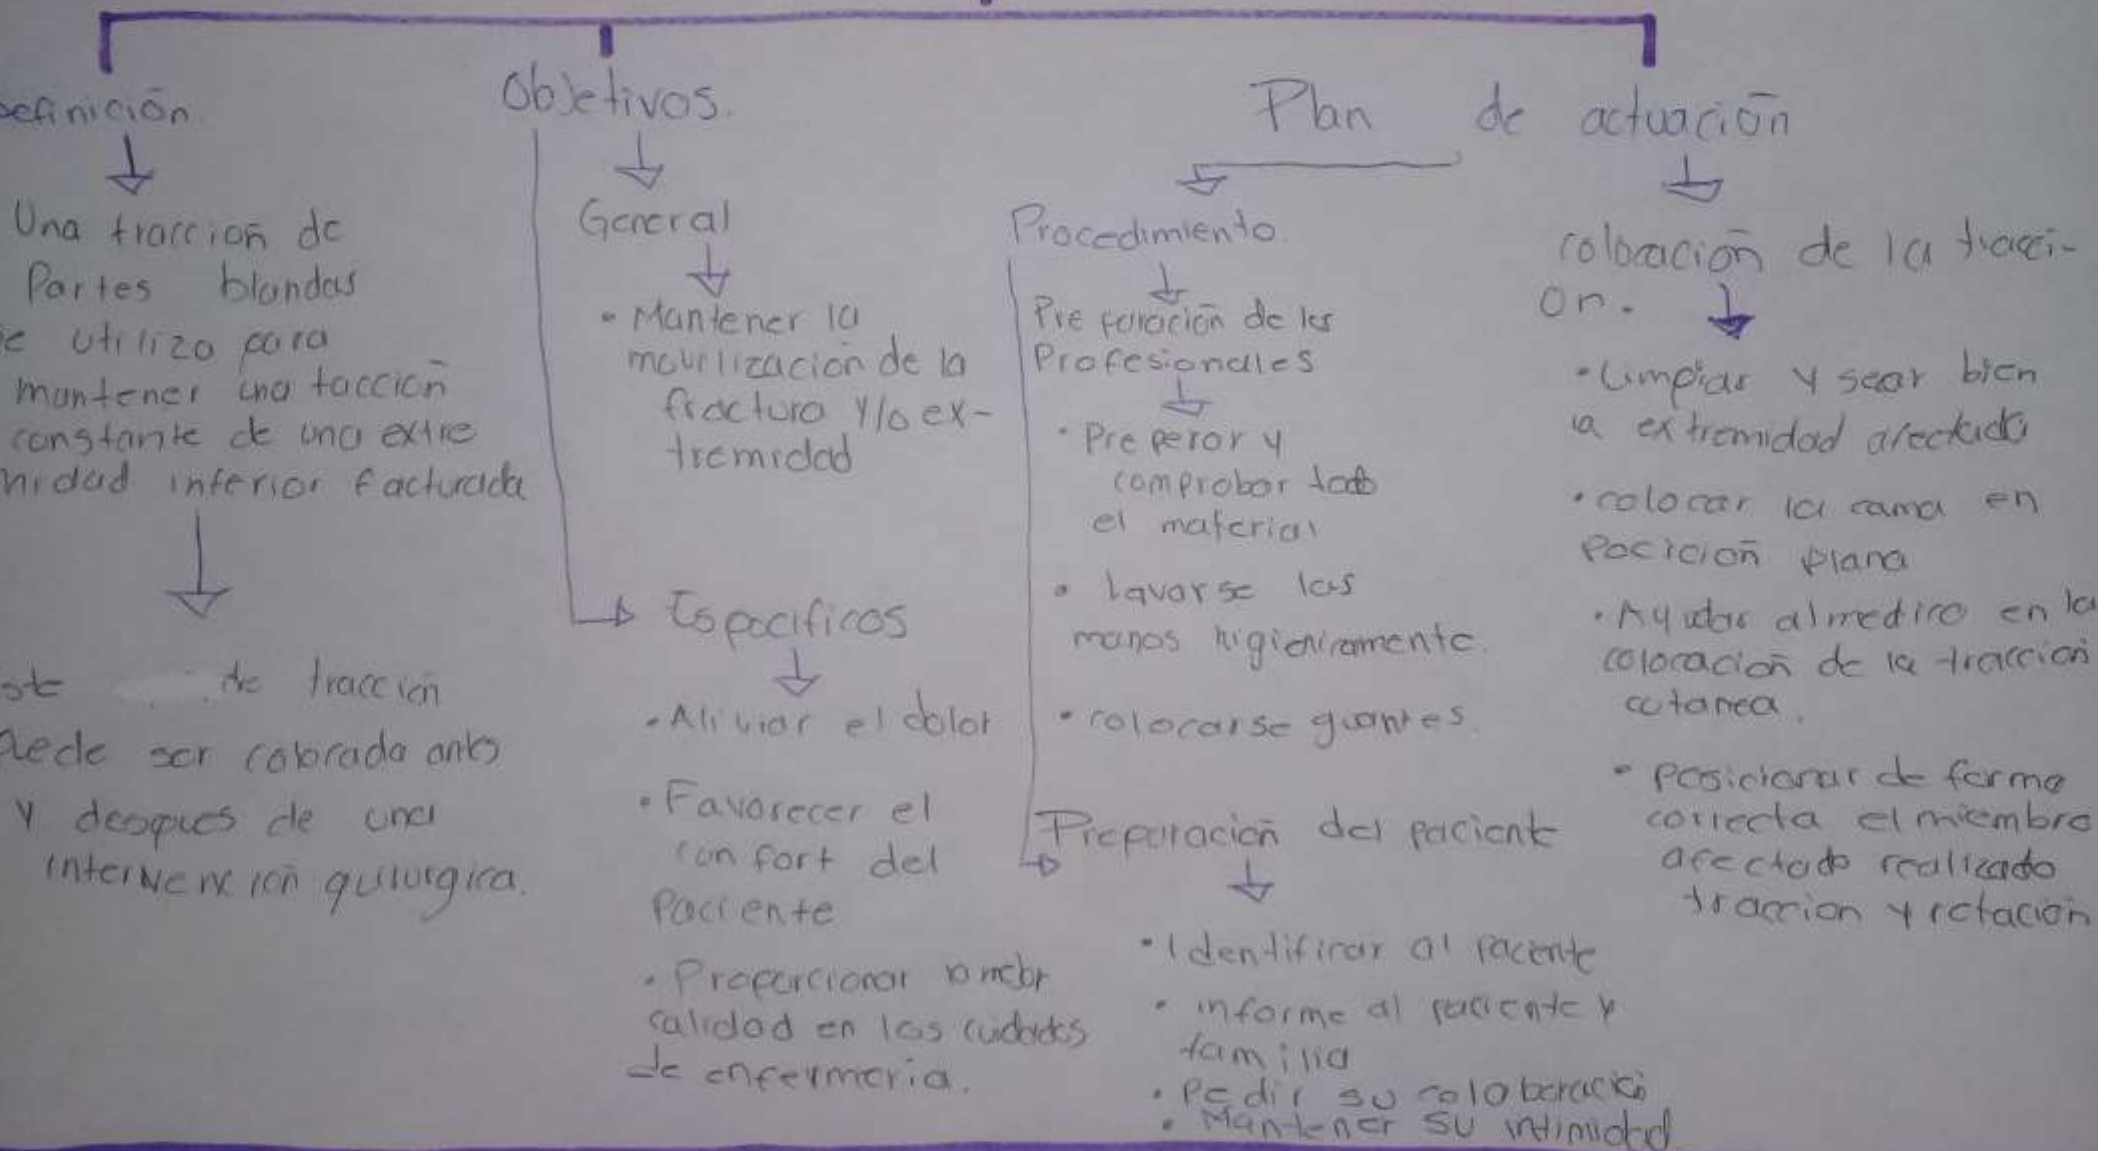 Definición.
Una tracción de
Partes blandas
se utilizo para
mantener una tacción
constante de una extre
midad inferior facturada
este de tracción
puede ser colocada antes
y despues de una
intervención quirurgica.
Objetivos.
General
• Mantener la
movilización de la
fractura y/o ex-
tremidad
Especificos
• Aliviar el dolor
• Favorecer el
confort del
Paciente
• Proporcionar la mejor
calidad en los cuidados
de enfermeria.
Plan de actuación
Procedimiento.
Preparación de los
Profesionales
• Preperar y
comprobar todo
el material
• lavarse las
manos higienicamente.
• colocarse guantes.
Preparación del paciente
• Identificar al paciente
• informe al paciente y
familia
• Pedir su colaboració
• Mantener su intimidad
colocación de la tracci-
on.
• Limpiar y sear bien
la extremidad afectada
• colocar la cama en
Pocición plana
• Ayudar al medico en la
colocación de la tracción
cutanea.
• Posicionar de forma
correcta el miembro
afectado realizado
tracción y rotación